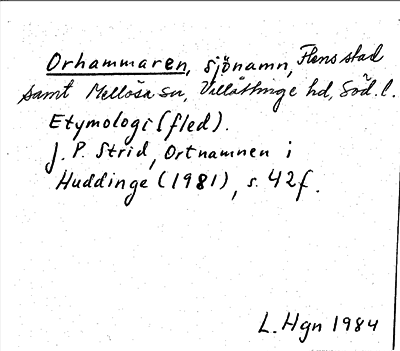 Orhammaren, sjönamn, Flens stad
samt Mellösa sn, Villåttinge hd, Söd. l.
Etymologi (fled).
J. P. Strid, Ortnamnen i
Huddinge (1981), s. 42f.
L. Hgn 1984